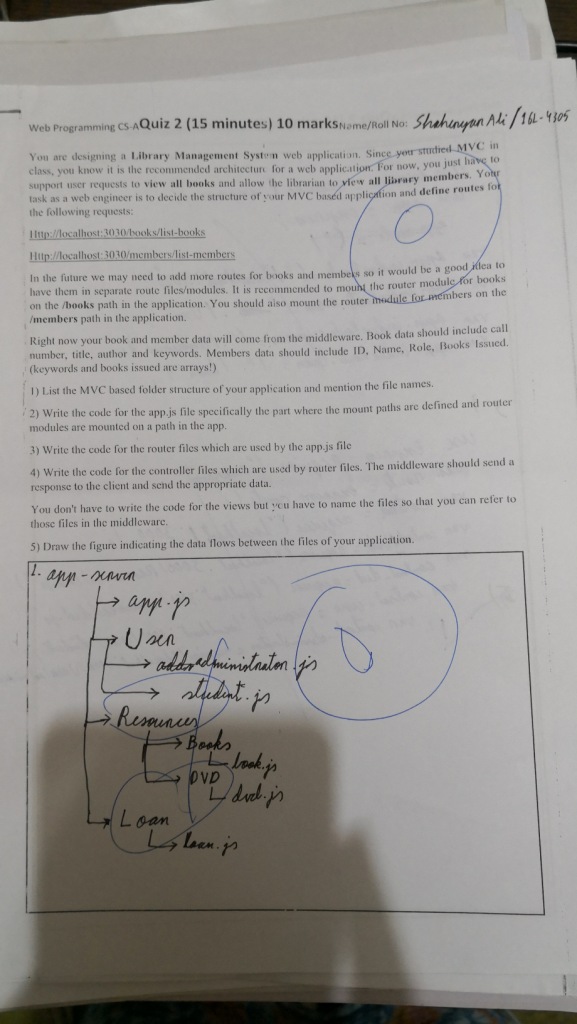 Web Programming CS-A Quiz 2 (15 minutes) 10 marks Name/Roll No: Shaheryar Ali / 16L-4305
You are designing a Library Management System web application. Since you studied MVC in
class, you know it is the recommended architecture for a web application. For now, you just have to
support user requests to view all books and allow the librarian to view all library members. Your
task as a web engineer is to decide the structure of your MVC based application and define routes for
the following requests:
Http://localhost:3030/books/list-books
Http://localhost:3030/members/list-members
In the future we may need to add more routes for books and members so it would be a good idea to
have them in separate route files/modules. It is recommended to mount the router module for books
on the /books path in the application. You should also mount the router module for members on the
/members path in the application.
Right now your book and member data will come from the middleware. Book data should include call
number, title, author and keywords. Members data should include ID, Name, Role, Books Issued.
(keywords and books issued are arrays!)
1) List the MVC based folder structure of your application and mention the file names.
2) Write the code for the app.js file specifically the part where the mount paths are defined and router
modules are mounted on a path in the app.
3) Write the code for the router files which are used by the app.js file
4) Write the code for the controller files which are used by router files. The middleware should send a
response to the client and send the appropriate data.
You don't have to write the code for the views but you have to name the files so that you can refer to
those files in the middleware.
5) Draw the figure indicating the data flows between the files of your application.
1. app-server
app.js
User
administrator.js
student.js
Resources
Books
book.js
DVD
dvd.js
Loan
loan.js
0
0